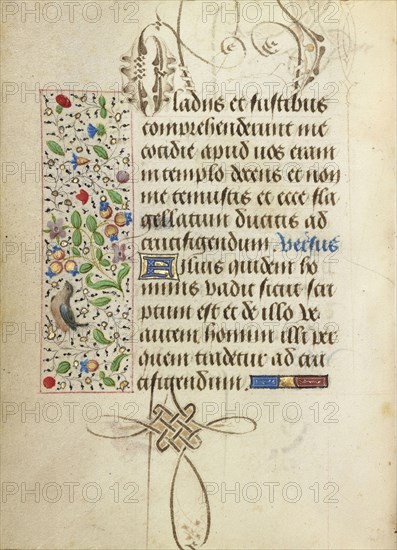 Gladiis et fustibus
comprehenderunt me
cotidie apud vos eram
in templo docens et non
me tenuistis et ecce fla
gellatum ducitis ad
crucifigendum. Versus
Filius quidem ho
minis vadit sicut scri
ptum est et de illo ve
autem homini illi per
quem tradetur ad cru
cifigendum.
PHOTO 12